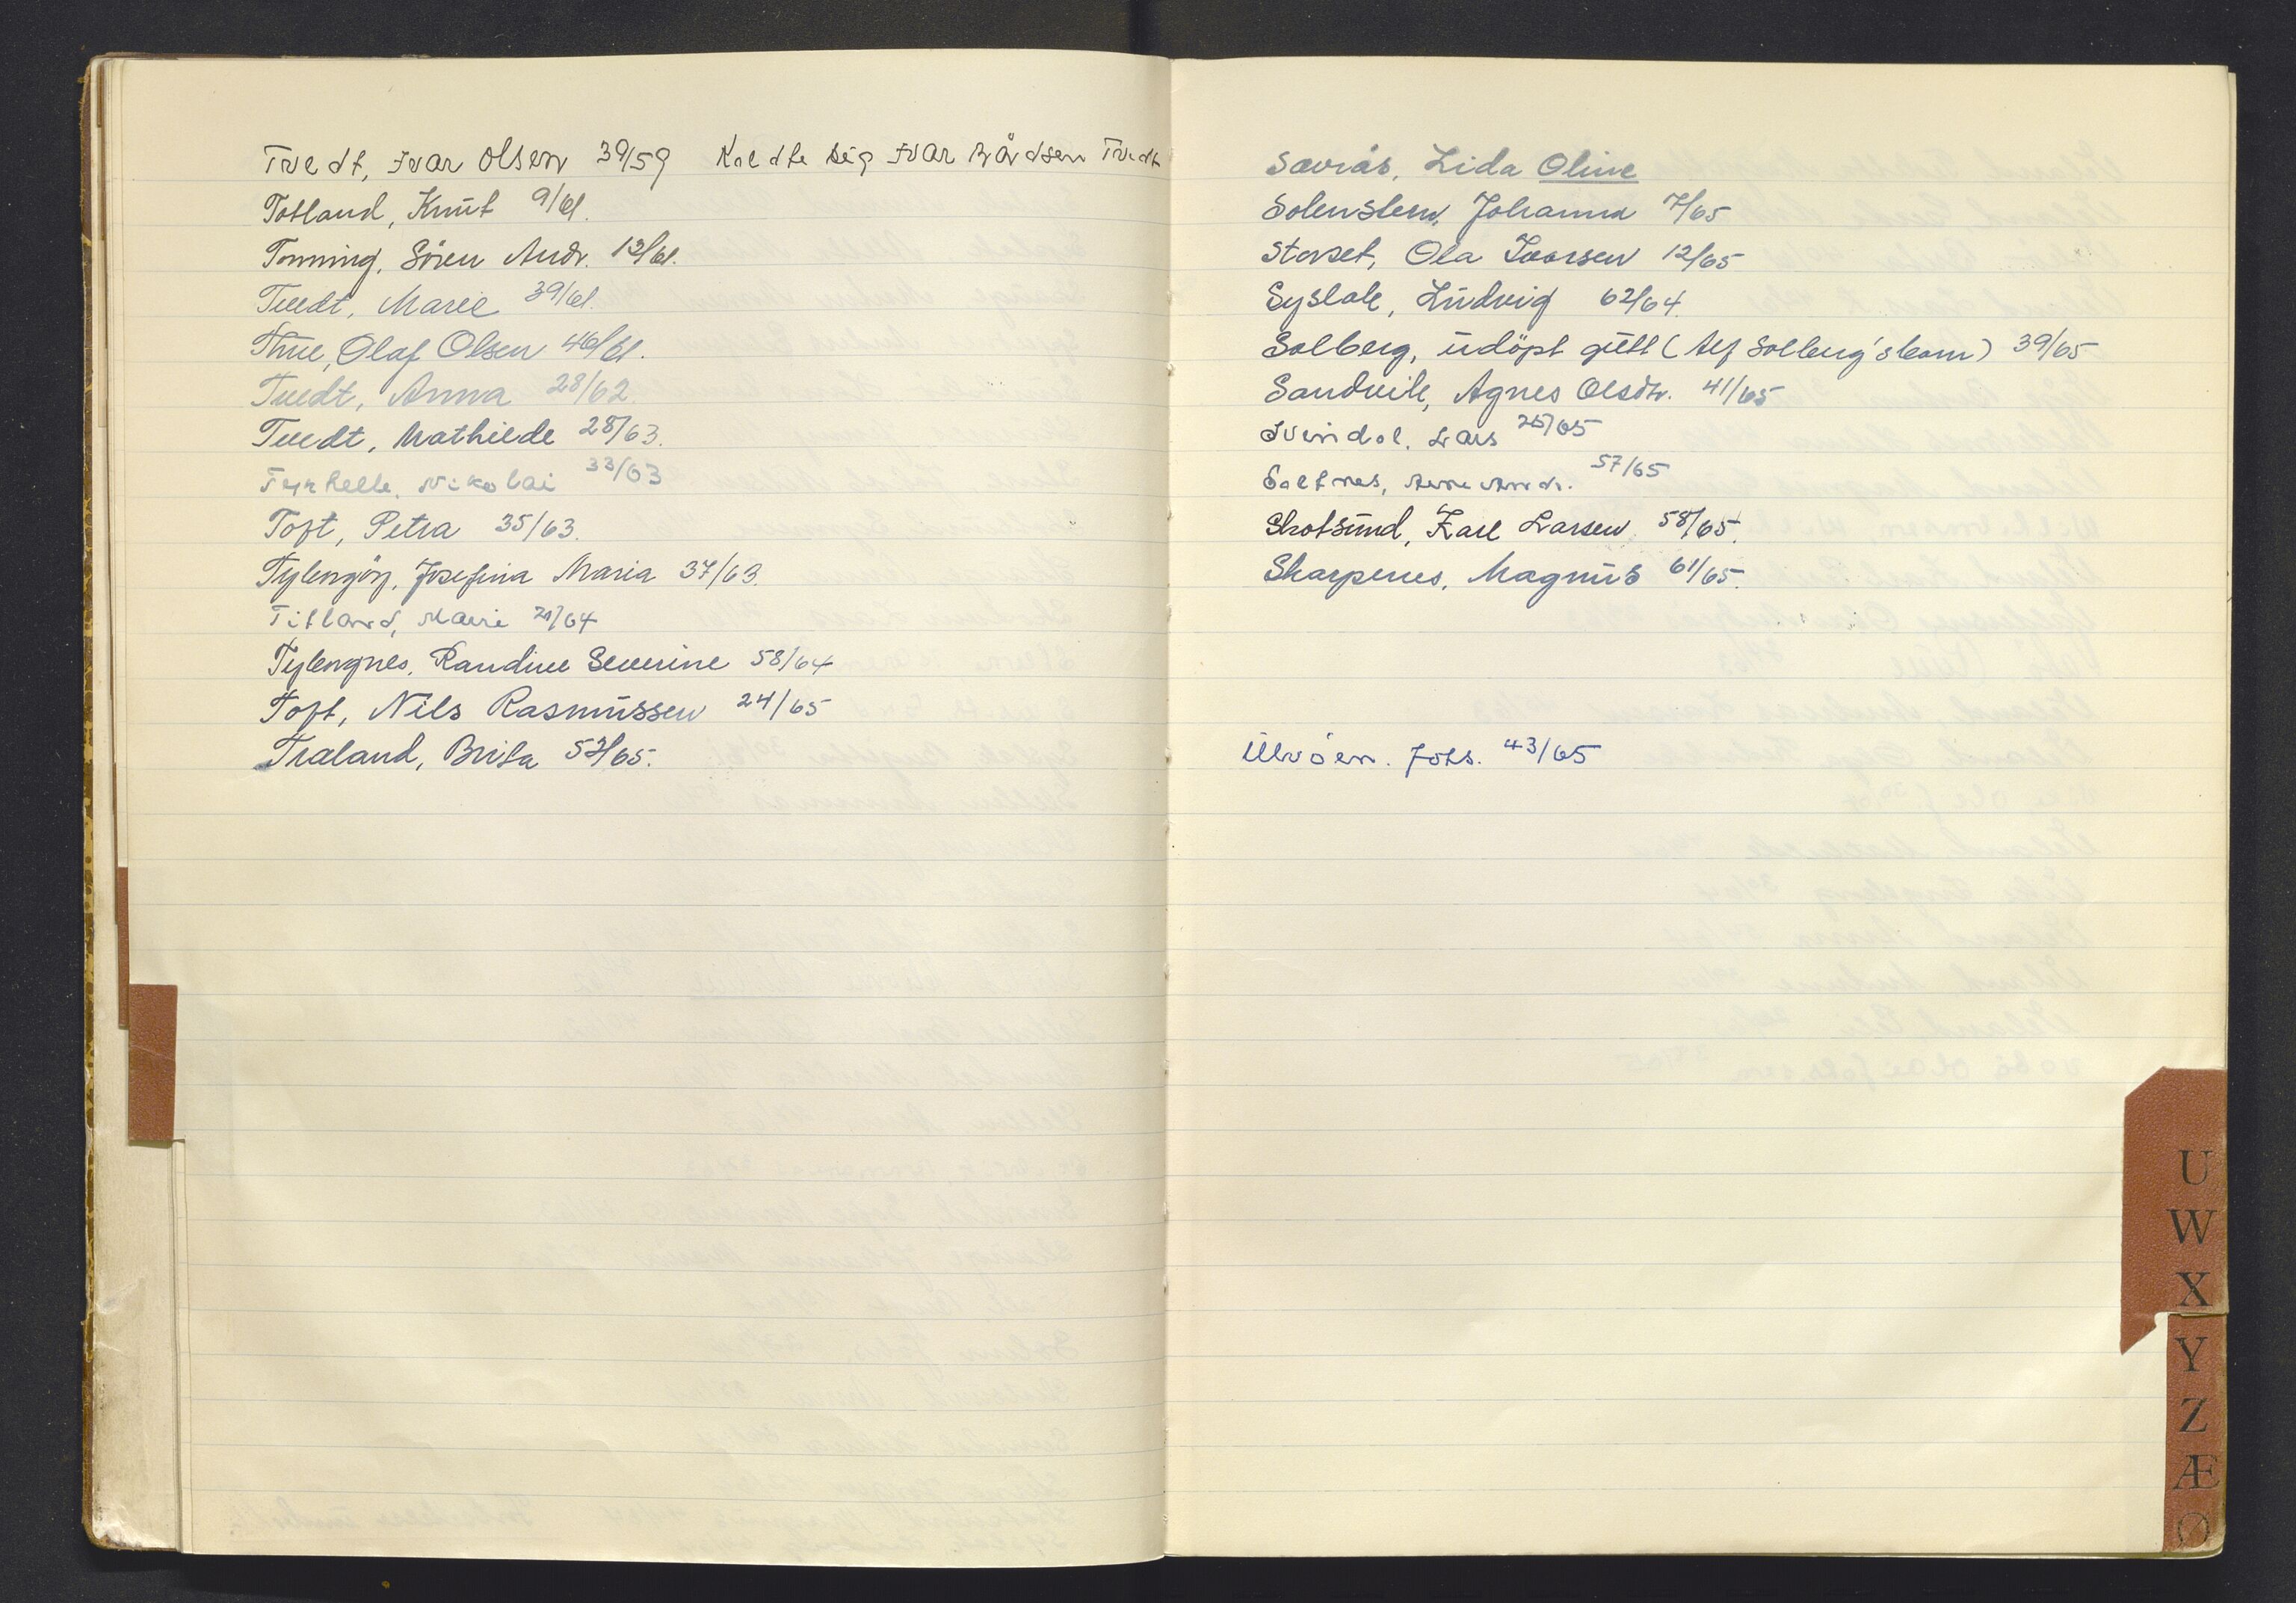 Tvedt, Ivar Olsen 39/59 Kaldte sig Ivar Bårdsen Tvedt
Totland, Knut 9/61.
Tonning, Sören Andr. 12/61.
Tvedt, Marie 39/61.
Thue, Olaf Olsen 46/61.
Tvedt, Anna 28/62.
Tvedt, Mathilde 28/63.
Nikolai 33/63
Toft, Petra 35/63.
Josefina Maria 37/63.
Titland, Marie 21/64
Tylengnes, Randine Severine 58/64
Toft, Nils Rasmussen 24/65
Træland, Brita 52/65.
Sævrås, Lida Oline
Solensten, Johanna 7/65
Storset, Ola Ivarsen 12/65
Syslak, Ludvig 62/64.
Solberg, udöpt gutt (Alf Solberg's barn) 39/65
Sandvik, Agnes Olsdtr. 41/65
Svendal, Lars 25/65
Saltnes, Andr. 57/65
Skotsund, Karl Larsen 58/65.
Skarpenes, Magnus 61/65.
Ulvöen. Johs. 43/65
U
W
X
Y
Z
Æ
Ø